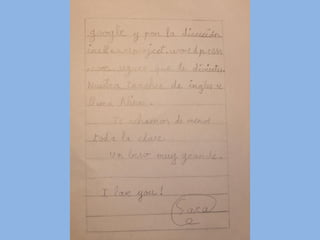 google y pon la dirección
wordpress
seguro que te diviertes.
Nuestra teacher de ingles
Te echamos de menos
toda la clase.
Un beso muy grande.
I love you!
Sara